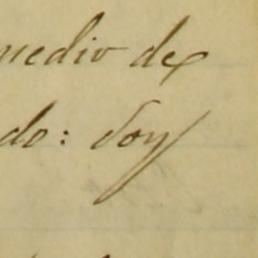 medio de
do: Soy